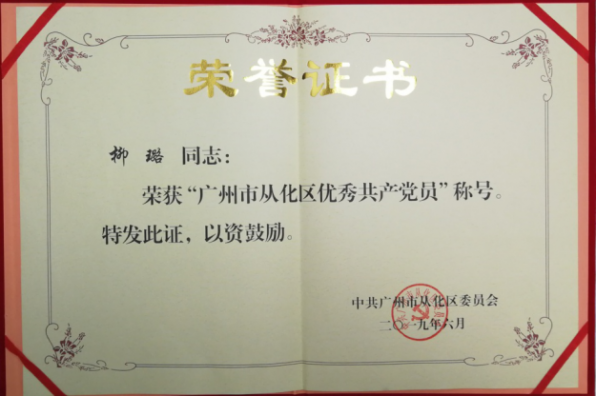 荣誉证书
柳璐 同志：
荣获“广州市从化区优秀共产党员”称号。
特发此证，以资鼓励。
中共广州市从化区委员会
二〇一九年六月